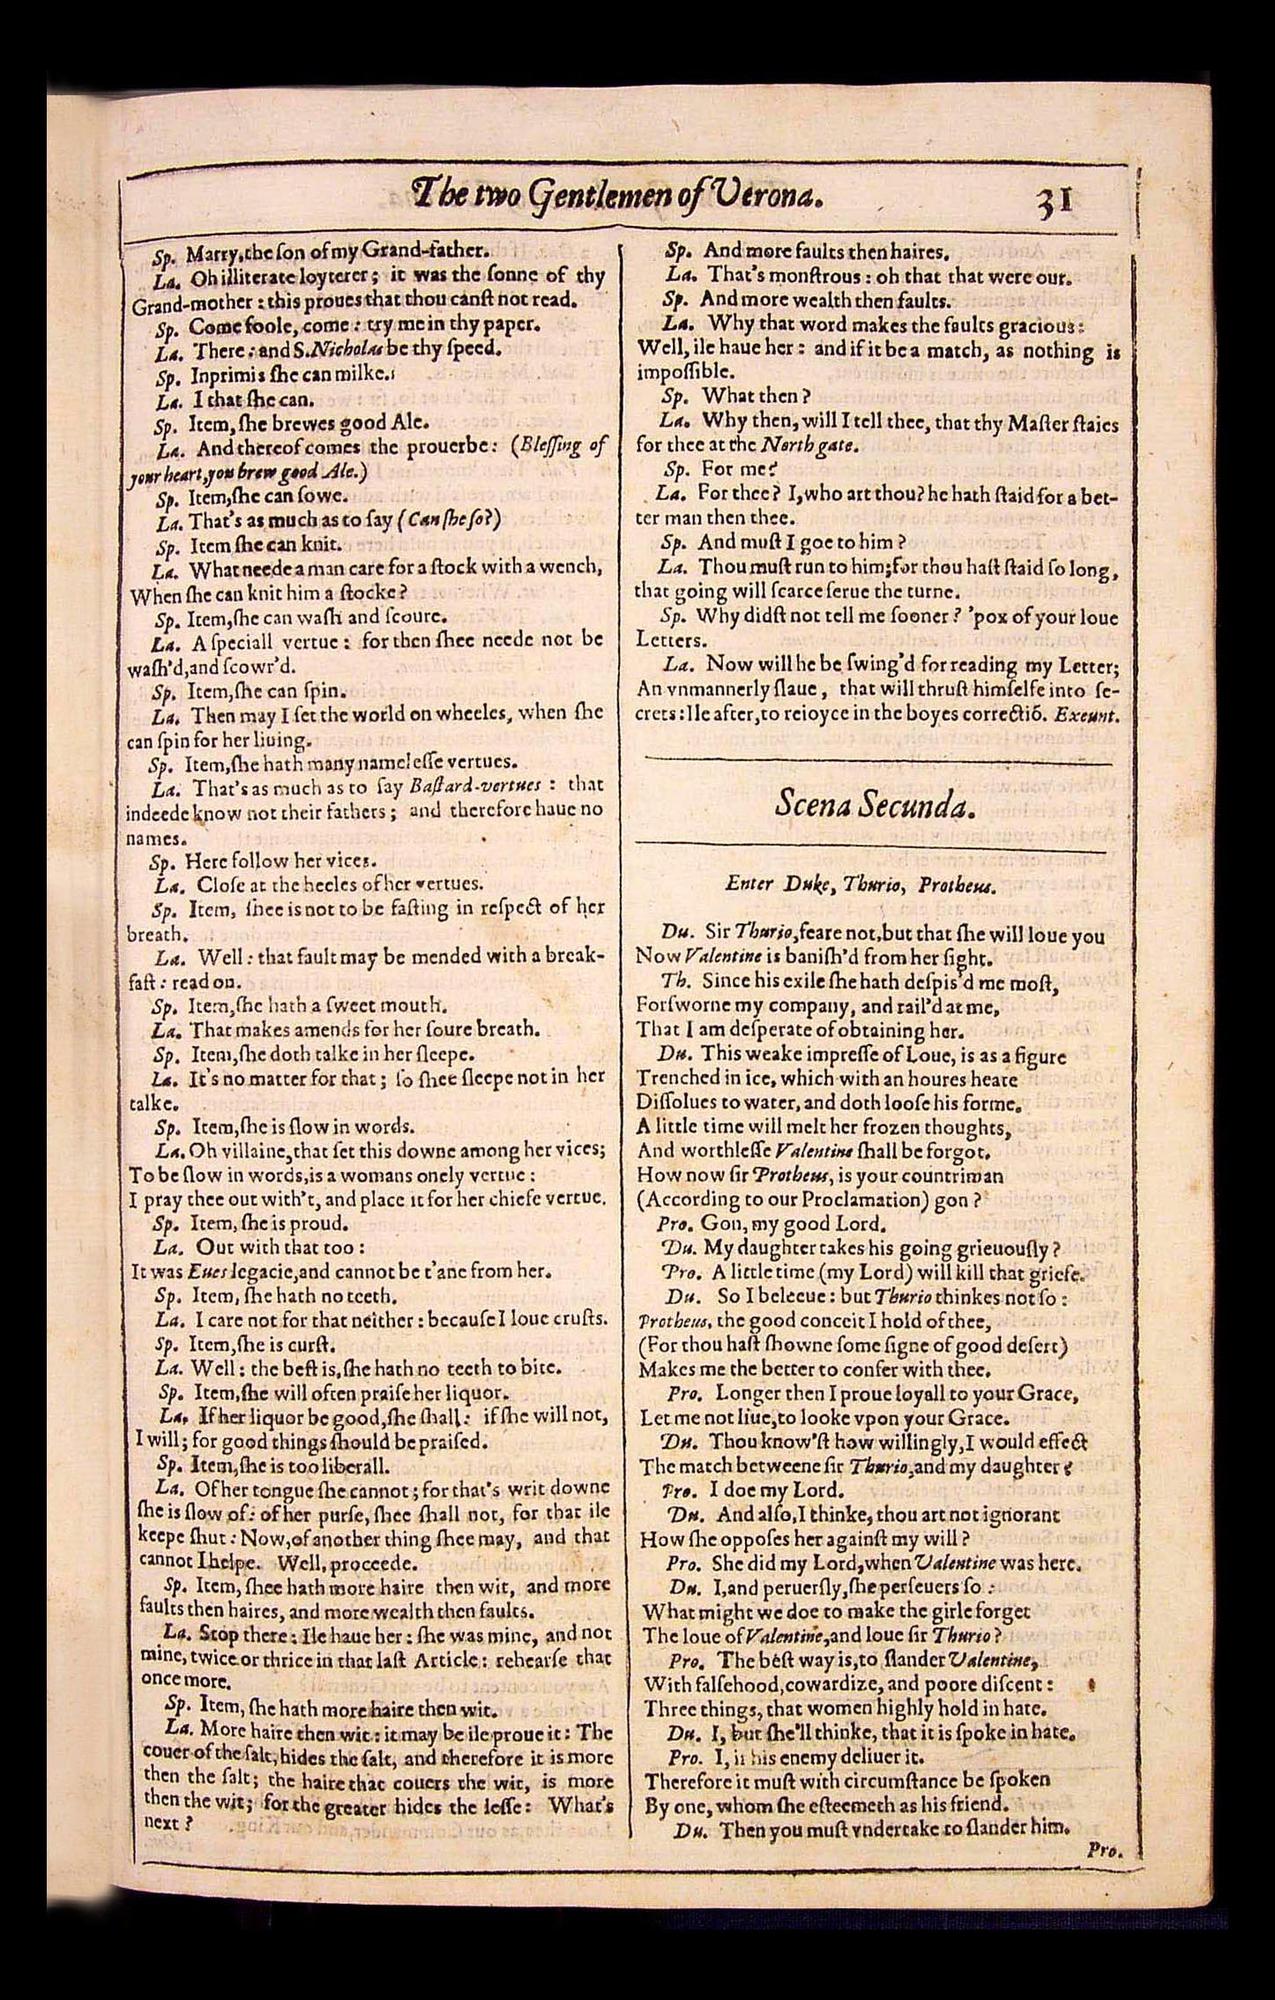 The two Gentlemen of Verona.
31
Sp. Marry, the ſon of my Grand-father.
La. Oh illiterate loyterer; it was the ſonne of thy
Grand-mother: this proues that thou canſt not read.
Sp. Come foole, come: try me in thy paper.
La. There: and S. Nicholas be thy ſpeed.
Sp. Inprimis ſhe can milke.
La. I that ſhe can.
Sp. Item, ſhe brewes good Ale.
La. And thereof comes the prouerbe: (Bleſſing of
your heart, you brew good Ale.)
Sp. Item, ſhe can ſowe.
La. That's as much as to ſay (Can ſhe ſo?)
Sp. Item ſhe can knit.
La. What neede a man care for a ſtock with a wench,
When ſhe can knit him a ſtocke?
Sp. Item, ſhe can waſh and ſcoure.
La. A ſpeciall vertue: for then ſhee neede not be
waſh'd, and ſcowr'd.
Sp. Item, ſhe can ſpin.
La. Then may I ſet the world on wheeles, when ſhe
can ſpin for her liuing.
Sp. Item, ſhe hath many nameleſſe vertues.
La. That's as much as to ſay Baſtard-vertues: that
indeede know not their fathers; and therefore haue no
names.
Sp. Here follow her vices.
La. Cloſe at the heeles of her vertues.
Sp. Item, ſhee is not to be faſting in reſpect of her
breath.
La. Well: that fault may be mended with a break-
faſt: read on.
Sp. Item, ſhe hath a ſweet mouth.
La. That makes amends for her ſoure breath.
Sp. Item, ſhe doth talke in her ſleepe.
La. It's no matter for that; ſo ſhee ſleepe not in her
talke.
Sp. Item, ſhe is ſlow in words.
La. Oh villaine, that ſet this downe among her vices;
To be ſlow in words, is a womans onely vertue:
I pray thee out with't, and place it for her chiefe vertue.
Sp. Item, ſhe is proud.
La. Out with that too:
It was Eues legacie, and cannot be t'ane from her.
Sp. Item, ſhe hath no teeth.
La. I care not for that neither: becauſe I loue cruſts.
Sp. Item, ſhe is curſt.
La. Well: the beſt is, ſhe hath no teeth to bite.
Sp. Item, ſhe will often praiſe her liquor.
La. If her liquor be good, ſhe ſhall: if ſhe will not,
I will; for good things ſhould be praiſed.
Sp. Item, ſhe is too liberall.
La. Of her tongue ſhe cannot; for that's writ downe
ſhe is ſlow of: of her purſe, ſhee ſhall not, for that ile
keepe ſhut: Now, of another thing ſhee may, and that
cannot I helpe. Well, proceede.
Sp. Item, ſhee hath more haire then wit, and more
faults then haires, and more wealth then faults.
La. Stop there: Ile haue her: ſhe was mine, and not
mine, twice or thrice in that laſt Article: rehearſe that
once more.
Sp. Item, ſhe hath more haire then wit.
La. More haire then wit: it may be ile proue it: The
couer of the ſalt, hides the ſalt, and therefore it is more
then the ſalt; the haire that couers the wit, is more
then the wit; for the greater hides the leſſe: What's
next?
Sp. And more faults then haires.
La. That's monſtrous: oh that that were out.
Sp. And more wealth then faults.
La. Why that word makes the faults gracious:
Well, ile haue her: and if it be a match, as nothing is
impoſſible.
Sp. What then?
La. Why then, will I tell thee, that thy Maſter ſtaies
for thee at the North gate.
Sp. For me?
La. For thee? I, who art thou? he hath ſtaid for a bet-
ter man then thee.
Sp. And muſt I goe to him?
La. Thou muſt run to him; for thou haſt ſtaid ſo long,
that going will ſcarce ſerue the turne.
Sp. Why didſt not tell me ſooner? 'pox of your loue
Letters.
La. Now will he be ſwing'd for reading my Letter;
An vnmannerly ſlaue, that will thruſt himſelfe into ſe-
crets: Ile after, to reioyce in the boyes correctiō. Exeunt.
Scena Secunda.
Enter Duke, Thurio, Protheus.
Du. Sir Thurio, feare not, but that ſhe will loue you
Now Valentine is baniſh'd from her ſight.
Th. Since his exile ſhe hath deſpis'd me moſt,
Forſworne my company, and rail'd at me,
That I am deſperate of obtaining her.
Du. This weake impreſſe of Loue, is as a figure
Trenched in ice, which with an houres heate
Diſſolues to water, and doth looſe his forme.
A little time will melt her frozen thoughts,
And worthleſſe Valentine ſhall be forgot.
How now ſir Protheus, is your countriman
(According to our Proclamation) gon?
Pro. Gon, my good Lord.
Du. My daughter takes his going grieuouſly?
Pro. A little time (my Lord) will kill that griefe.
Du. So I beleeue: but Thurio thinkes not ſo:
Protheus, the good conceit I hold of thee,
(For thou haſt ſhowne ſome ſigne of good deſert)
Makes me the better to confer with thee.
Pro. Longer then I proue loyall to your Grace,
Let me not liue, to looke vpon your Grace.
Du. Thou know'ſt how willingly, I would effect
The match betweene ſir Thurio, and my daughter?
Pro. I doe my Lord.
Du. And alſo, I thinke, thou art not ignorant
How ſhe oppoſes her againſt my will?
Pro. She did my Lord, when Valentine was here.
Du. I, and peruerſly, ſhe perſeuers ſo:
What might we doe to make the girle forget
The loue of Valentine, and loue ſir Thurio?
Pro. The beſt way is, to ſlander Valentine,
With falſehood, cowardize, and poore diſcent:
Three things, that women highly hold in hate.
Du. I, but ſhe'll thinke, that it is ſpoke in hate.
Pro. I, if his enemy deliuer it.
Therefore it muſt with circumſtance be ſpoken
By one, whom ſhe eſteemeth as his friend.
Du. Then you muſt vndertake to ſlander him.
Pro.